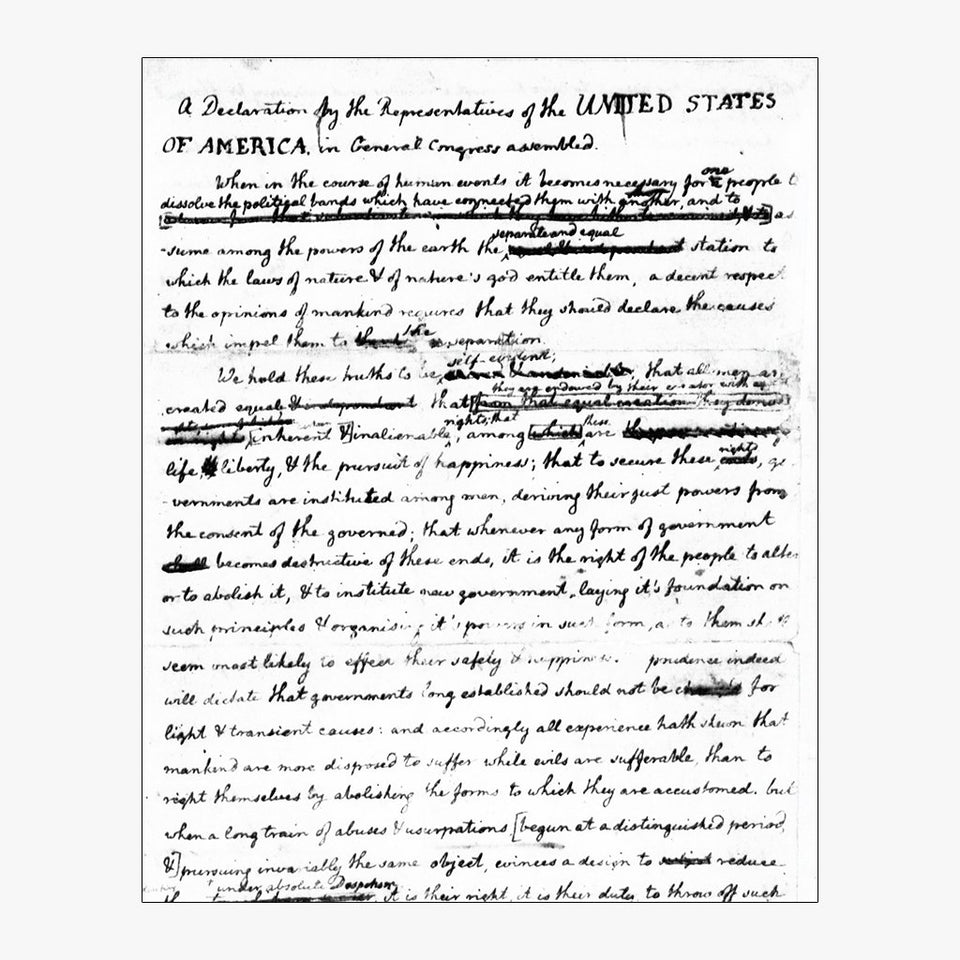 A Declaration by the Representatives of the UNITED STATES
OF AMERICA, in General Congress assembled.
When in the course of human events it becomes necessary for one people to
dissolve the political bands which have connected them with another, and to
as
-sume among the powers of the earth the separate and equal station to
which the laws of nature & of nature's god entitle them, a decent respect
to the opinions of mankind requires that they should declare the causes
which impel them to the separation.
We hold these truths to be self-evident; that all men are
they are endowed by their creator with
created equal & independent that from that equal creation they derive
rights; that these
inherent & inalienable, among which are
life liberty, & the pursuit of happiness; that to secure these rights, go
-vernments are instituted among men, deriving their just powers from
the consent of the governed; that whenever any form of government
shall becomes destructive of these ends, it is the right of the people to alter
or to abolish it, & to institute new government, laying it's foundation on
such principles & organising it's powers in such form, as to them sh
seem most likely to effect their safety & happiness. prudence indeed
will dictate that governments long established should not be for
light & transient causes: and accordingly all experience hath shewn that
mankind are more disposed to suffer while evils are sufferable, than to
right themselves by abolishing the forms to which they are accustomed. but
when a long train of abuses & usurpations [begun at a distinguished period,
&] pursuing invariably the same object, evinces a design to subject reduce
under absolute Despotism
it is their right, it is their duty, to throw off such